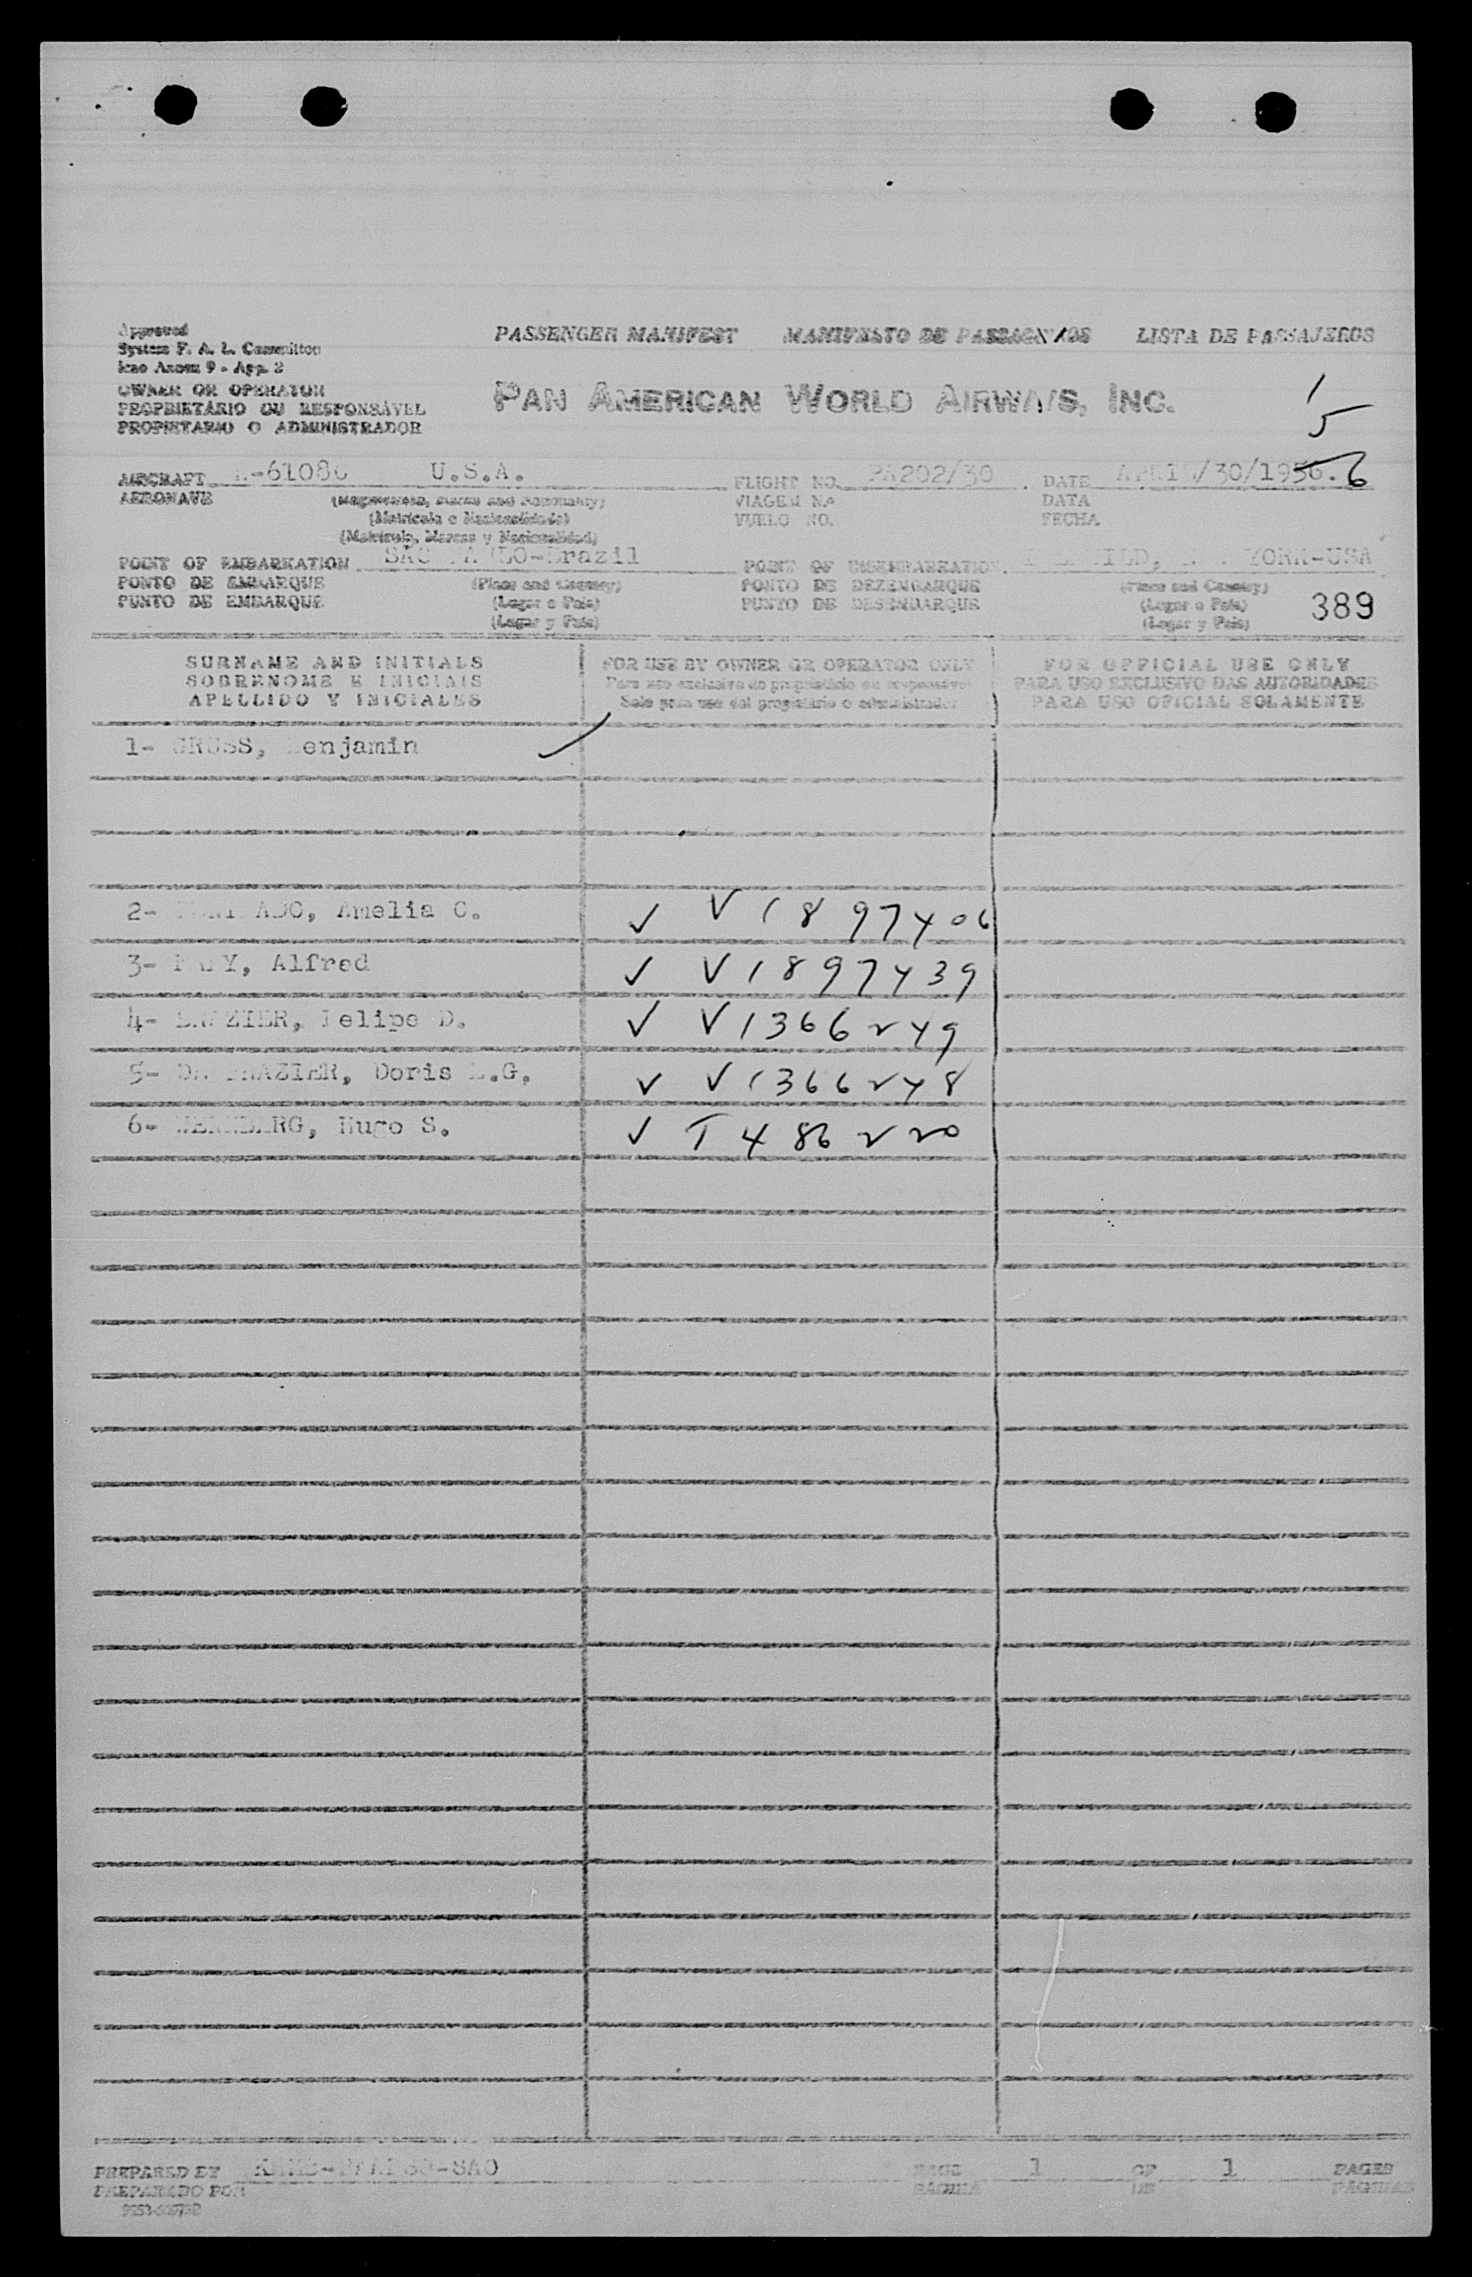 Approved
PASSENGER MANIFEST MANIFESTO DE PASSAGEIROS LISTA DE PASSAJEROS
System F. A. L. Committee
Icao Annex 9 - App. 2
OWNER OR OPERATOR
PROPRIETÁRIO OU RESPONSÁVEL
PROPIETARIO O ADMINISTRADOR
PAN AMERICAN WORLD AIRWAYS, INC.
1
5
AIRCRAFT N-6108C U.S.A. FLIGHT NO. PA202/30 DATE APRIL/30/1956. 6
AERONAVE (Registration, marks and Nationality) VIAGEM N.º DATA
(Matrícula e Nacionalidade) VUELO NO. FECHA
(Matrícula, Marcas y Nacionalidad)
POINT OF EMBARKATION SÃO PAULO-Brazil POINT OF DISEMBARKATION YORK-USA
PONTO DE EMBARQUE (Place and Country) PONTO DE DEZEMBARQUE (Place and Country)
PUNTO DE EMBARQUE (Lugar e País) PUNTO DE DESEMBARQUE (Lugar e País) 389
(Lugar y País) (Lugar y País)
SURNAME AND INITIALS FOR USE BY OWNER OR OPERATOR ONLY FOR OFFICIAL USE ONLY
SOBRENOME E INICIAIS Para uso exclusivo do proprietário ou responsável PARA USO EXCLUSIVO DAS AUTORIDADES
APELLIDO Y INICIALES Solo para uso del propietário o administrador PARA USO OFICIAL SOLAMENTE
1- GROSS, Benjamin
2- Amelia C. V1897406
3- Alfred V1897439
4- Felipe D. V1366249
5- DE FRAZIER, Doris V1366248
6- Hugo S. T486220
PREPARED BY PAGE 1 OF 1 PAGES
PREPARADO POR PÁGINA DE PÁGINAS